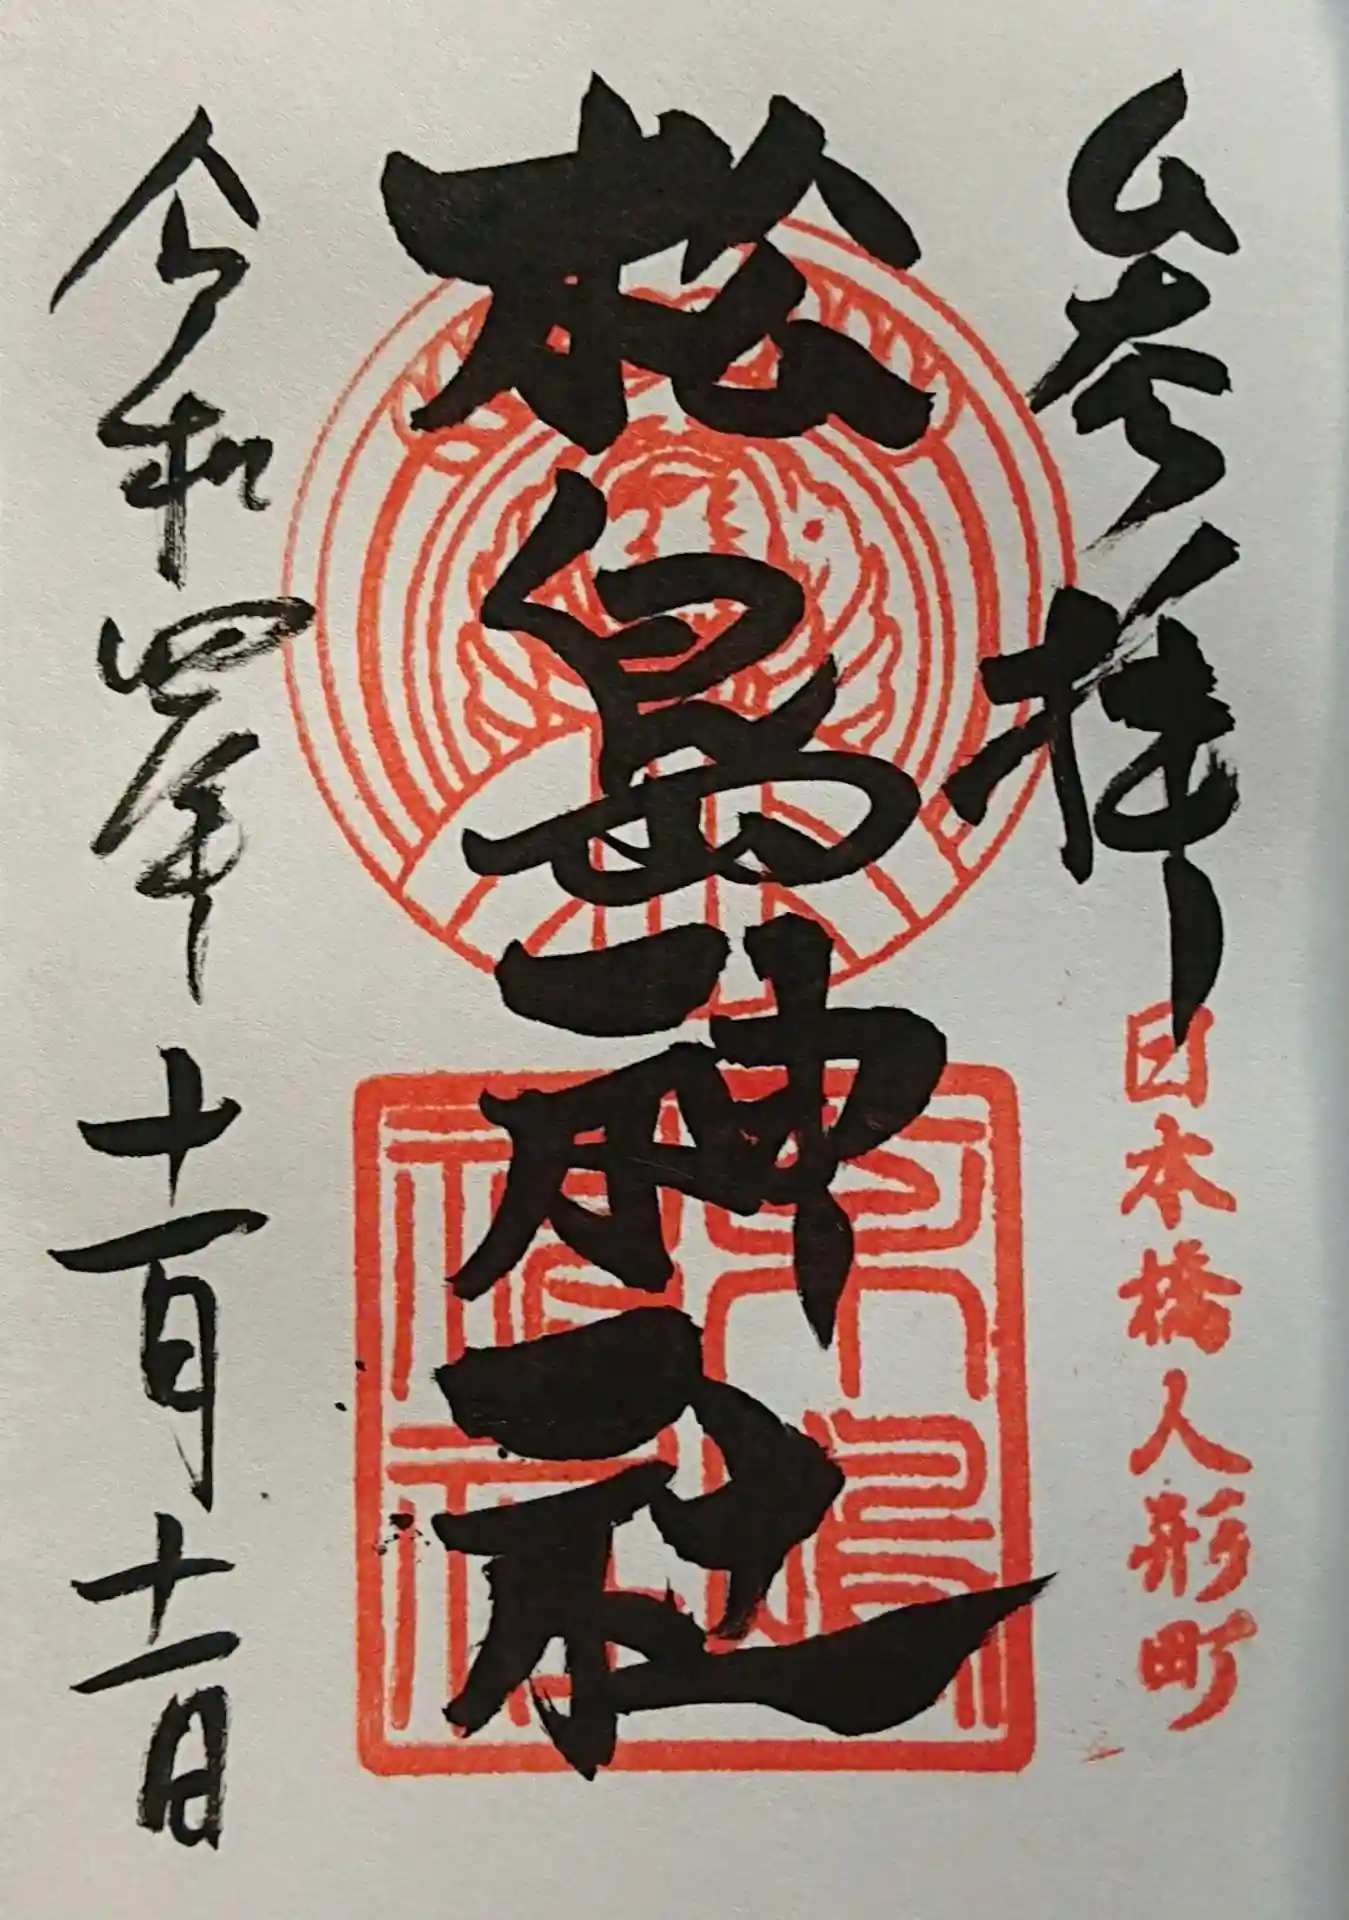 奉拝
日本橋人形町
松島神社
令和四年十一月十一日
松島神社